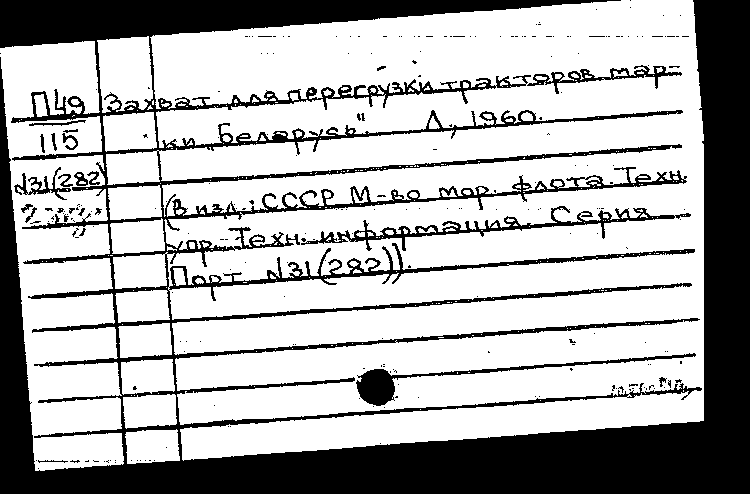 П49 Захват для перегрузки тракторов мар-
115 ки "Беларусь". Л., 1960.
N31(282)
(В изд.: СССР М-во мор. флота. Техн.
упр. Техн. информация. Серия
Порт N31(282)).